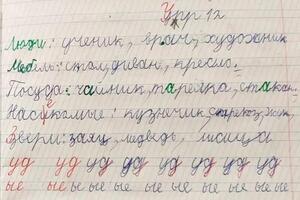 Упр 12
Люди: ученик, врач, художник
Мебель: стол, диван, кресло.
Посуда: чайник, тарелка, стакан.
Насекомые: кузнечик, стрекоза, жук,
Звери: заяц, медведь, лисица
уд уд уд уд уд уд уд уд
ые ые ые ые ые ые ые ые ые